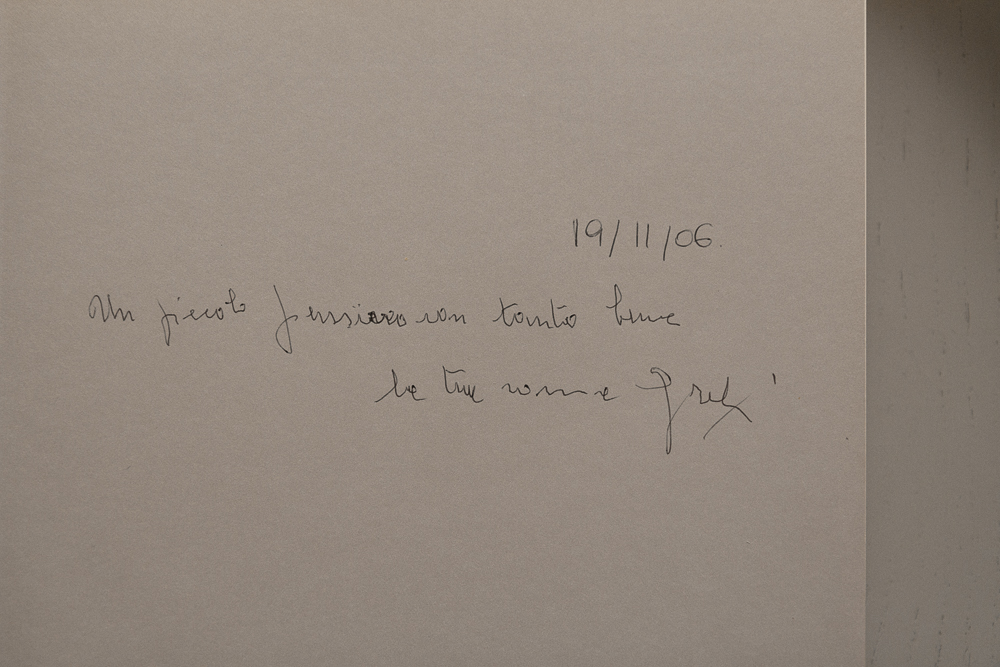 19/11/06.
Un piccolo pensiero con tanto bene
la tua nonna